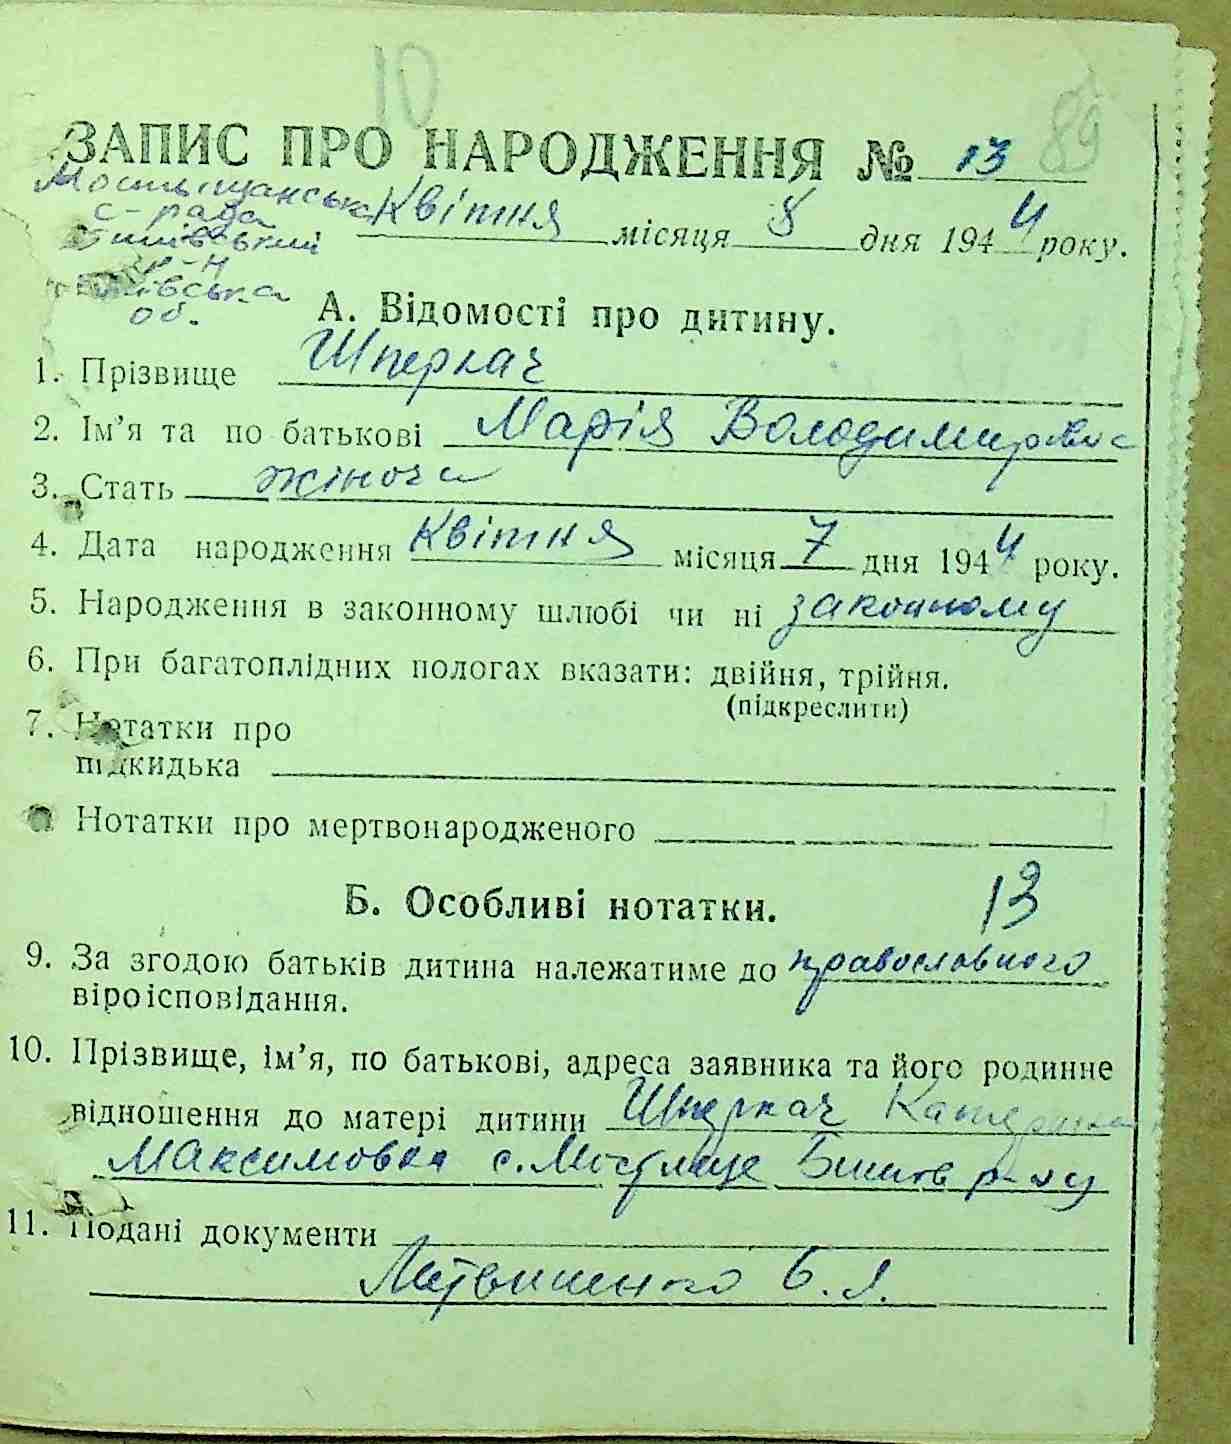 10
89
ЗАПИС ПРО НАРОДЖЕННЯ № 13
Мостищанська
с-рада
р-н
об.
Квітня місяця 8 дня 1944 року.
А. Відомості про дитину.
1. Прізвище Шперкач
2. Ім'я та по батькові Марія Володимирівна
3. Стать жіноча
4. Дата народження Квітня місяця 7 дня 1944 року.
5. Народження в законному шлюбі чи ні законному
6. При багатоплідних пологах вказати: двійня, трійня.
(підкреслити)
7. Нотатки про
підкидька
Нотатки про мертвонародженого
Б. Особливі нотатки.
13
9. За згодою батьків дитина належатиме до православного
віроісповідання.
10. Прізвище, ім'я, по батькові, адреса заявника та його родинне
відношення до матері дитини Шперкач Катерина
Максимовна с. Мостище р-ну
11. Подані документи